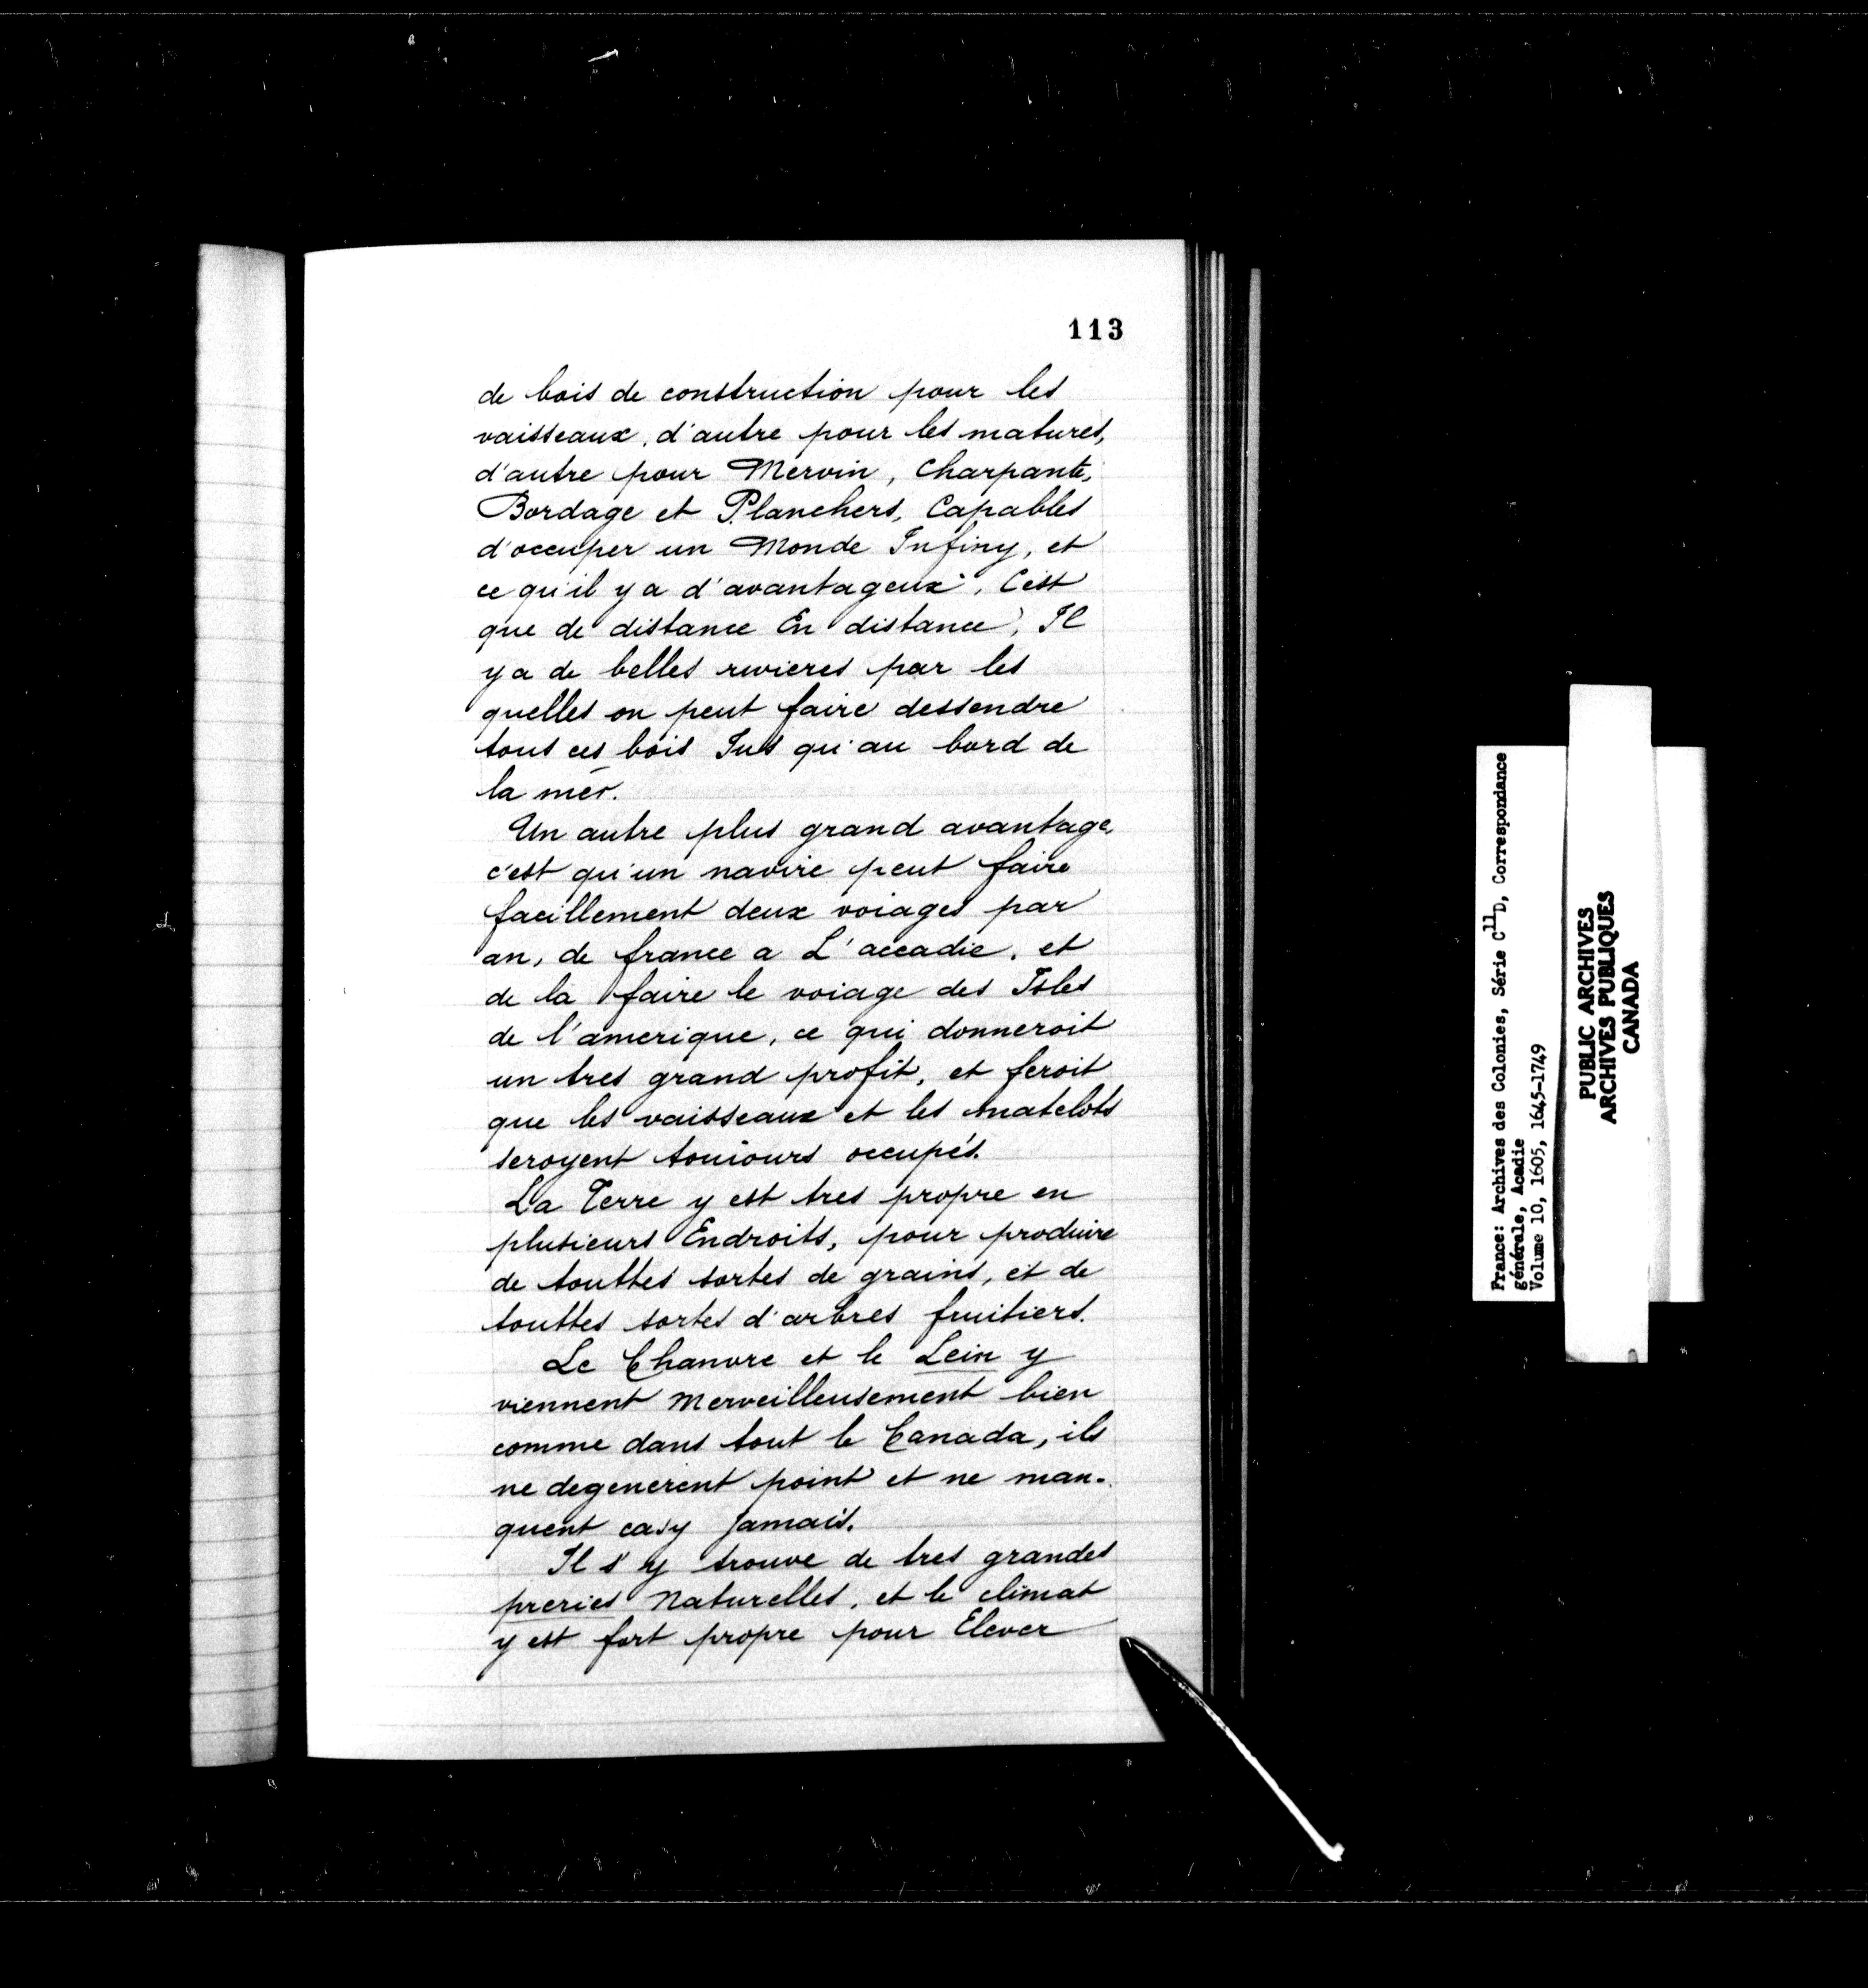 113
de bois de construction pour les
vaisseaux, d'autre pour les matures,
d'autre pour Mervin, Charpante,
Bordage et Planchers, Capables
d'occuper un Monde Infiny, et
ce qu'il y a d'avantageux, C'est
que de distance En distance, Il
y a de belles rivieres par les
quelles on peut faire dessendre
tous ces bois Jus qu'au bord de
la mer.
Un autre plus grand avantage,
c'est qu'un navire peut faire
facillement deux voiages par
an, de france a L'accadie, et
de la faire le voiage des Isles
de l'amerique, ce qui donneroit
un tres grand profit, et feroit
que les vaisseaux et les matelots
seroyent touiours occupés.
La Terre y est tres propre en
plusieurs Endroits, pour produire
de touttes sortes de grains, et de
touttes sortes d'arbres fruitiers.
Le Chanvre et le Lein y
viennent merveilleusement bien
comme dans tout le Canada, ils
ne degenerent point et ne man-
quent casy Jamais.
Il s'y trouve de tres grandes
preries Naturelles, et le climat
y est fort propre pour Elever
France: Archives des Colonies, Série C11D, Correspondance
générale, Acadie
Volume 10, 1605, 1645-1749
PUBLIC ARCHIVES
ARCHIVES PUBLIQUES
CANADA